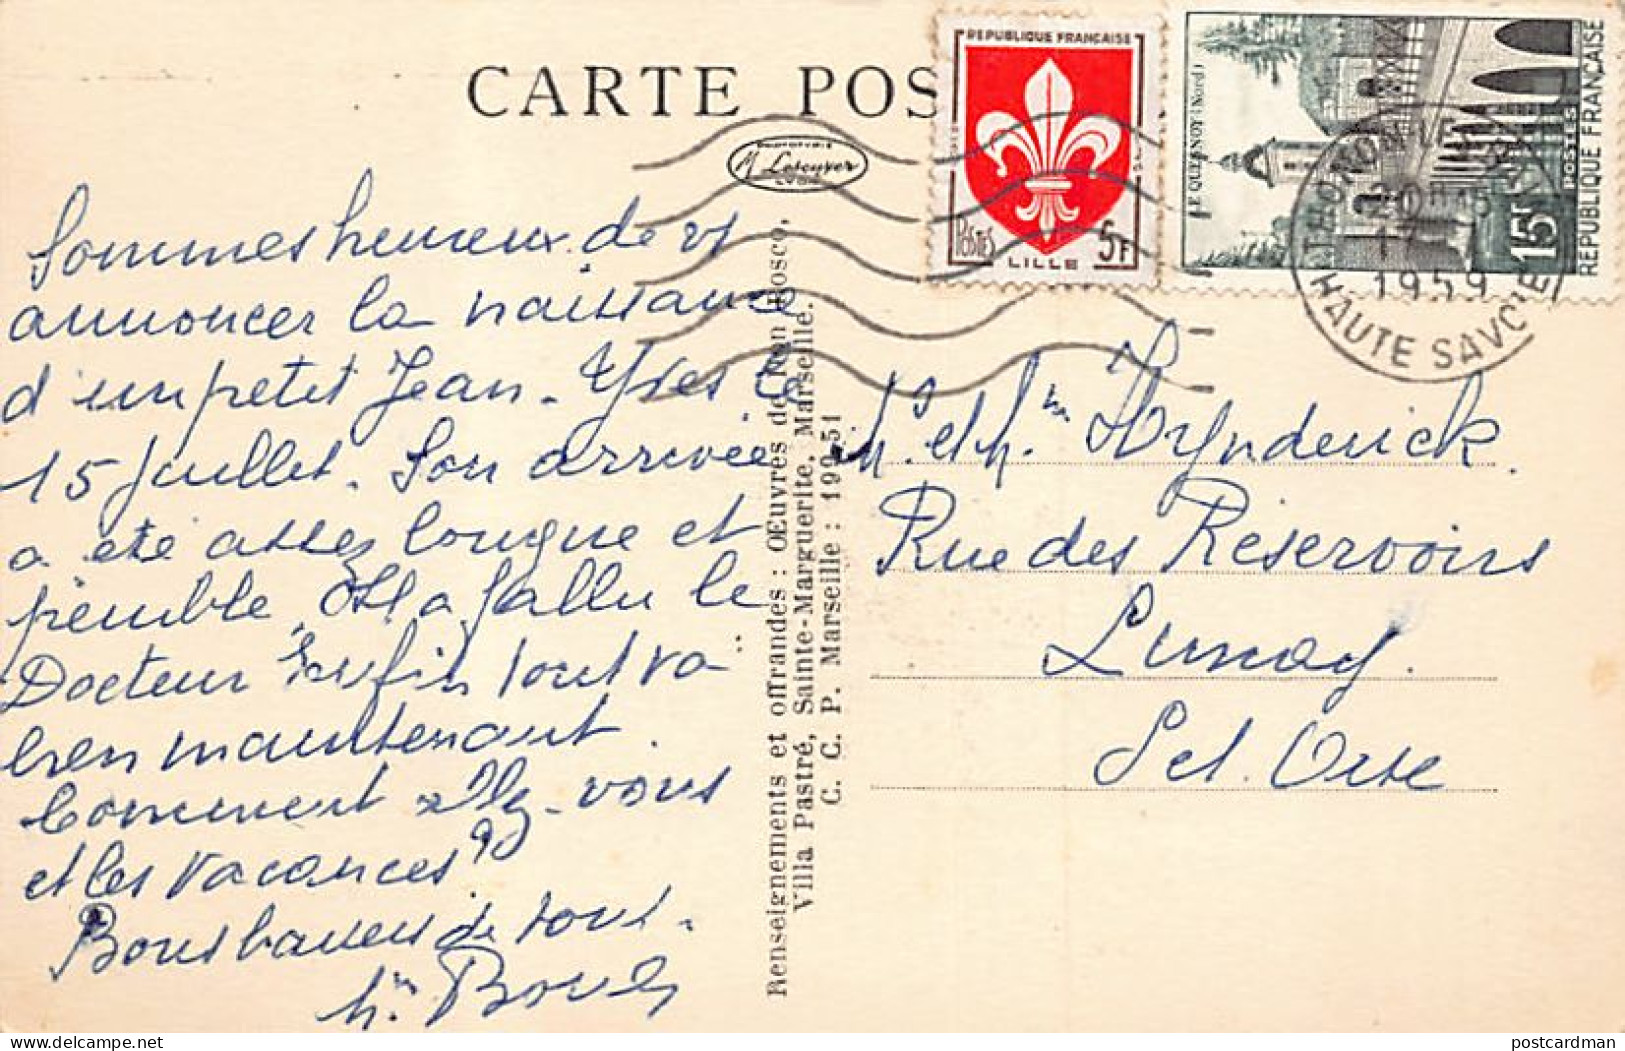 CARTE POS
PHOTOTYPIE
M. Lescuyer
LYON
REPUBLIQUE FRANÇAISE
POSTES
5F
LILLE
LE QUESNOY (Nord)
POSTES
15F
REPUBLIQUE FRANÇAISE
THONON LE
20H15
17-7
1959
HAUTE SAVOIE
Sommes heureux de vs
annoncer la naissance
d'un petit Jean-Yves le
15 juillet. Son arrivée
a été assez longue et
pénible. Il a fallu le
Docteur Enfin tout va
bien maintenant.
Comment allez-vous
et les vacances?
Bons baisers de tous.
Mm
Renseignements et offrandes : Œuvres de Don Bosco,
Villa Pastré, Sainte-Marguerite, Marseille.
C. C. P. Marseille : 19951
Mr et Mm Hynderick.
Rue des Réservoirs
Limay.
Set. Oise
postcardman